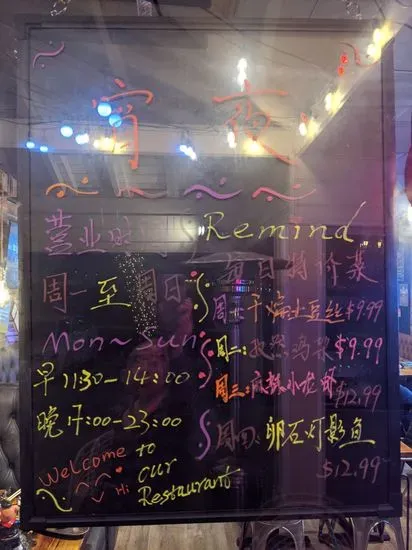 宵夜
营业时
Remind
周一至周日
每日特价菜
Mon~Sun
周一:干煸土豆丝$9.99
周二: $9.99
早11:30-14:00
周三:麻辣小龙虾
$12.99
晚17:00-23:00
周四:卵石灯影鱼
$12.99
Welcome to
Hi our
Restaurant